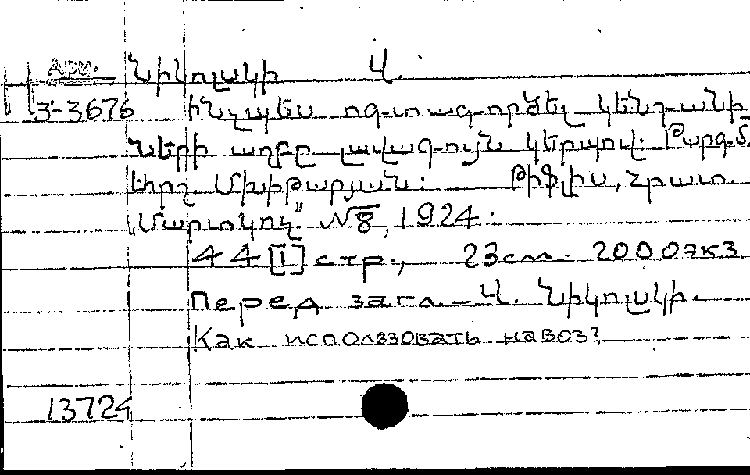 Арм. Նիկոլսկի Վ.
3-3676 Ինչպես օգտագործել կենդանի
ների աղբը լավագույն կերպով: Թարգմ.
Մխիթարյան: Թիֆլիս, հրատ.
"Մարտակոչ" №8, 1924:
44 [1] стр., 23см. 2000экз
Перед загл. Վ. Նիկոլսկի.
Как использовать навоз?
13724